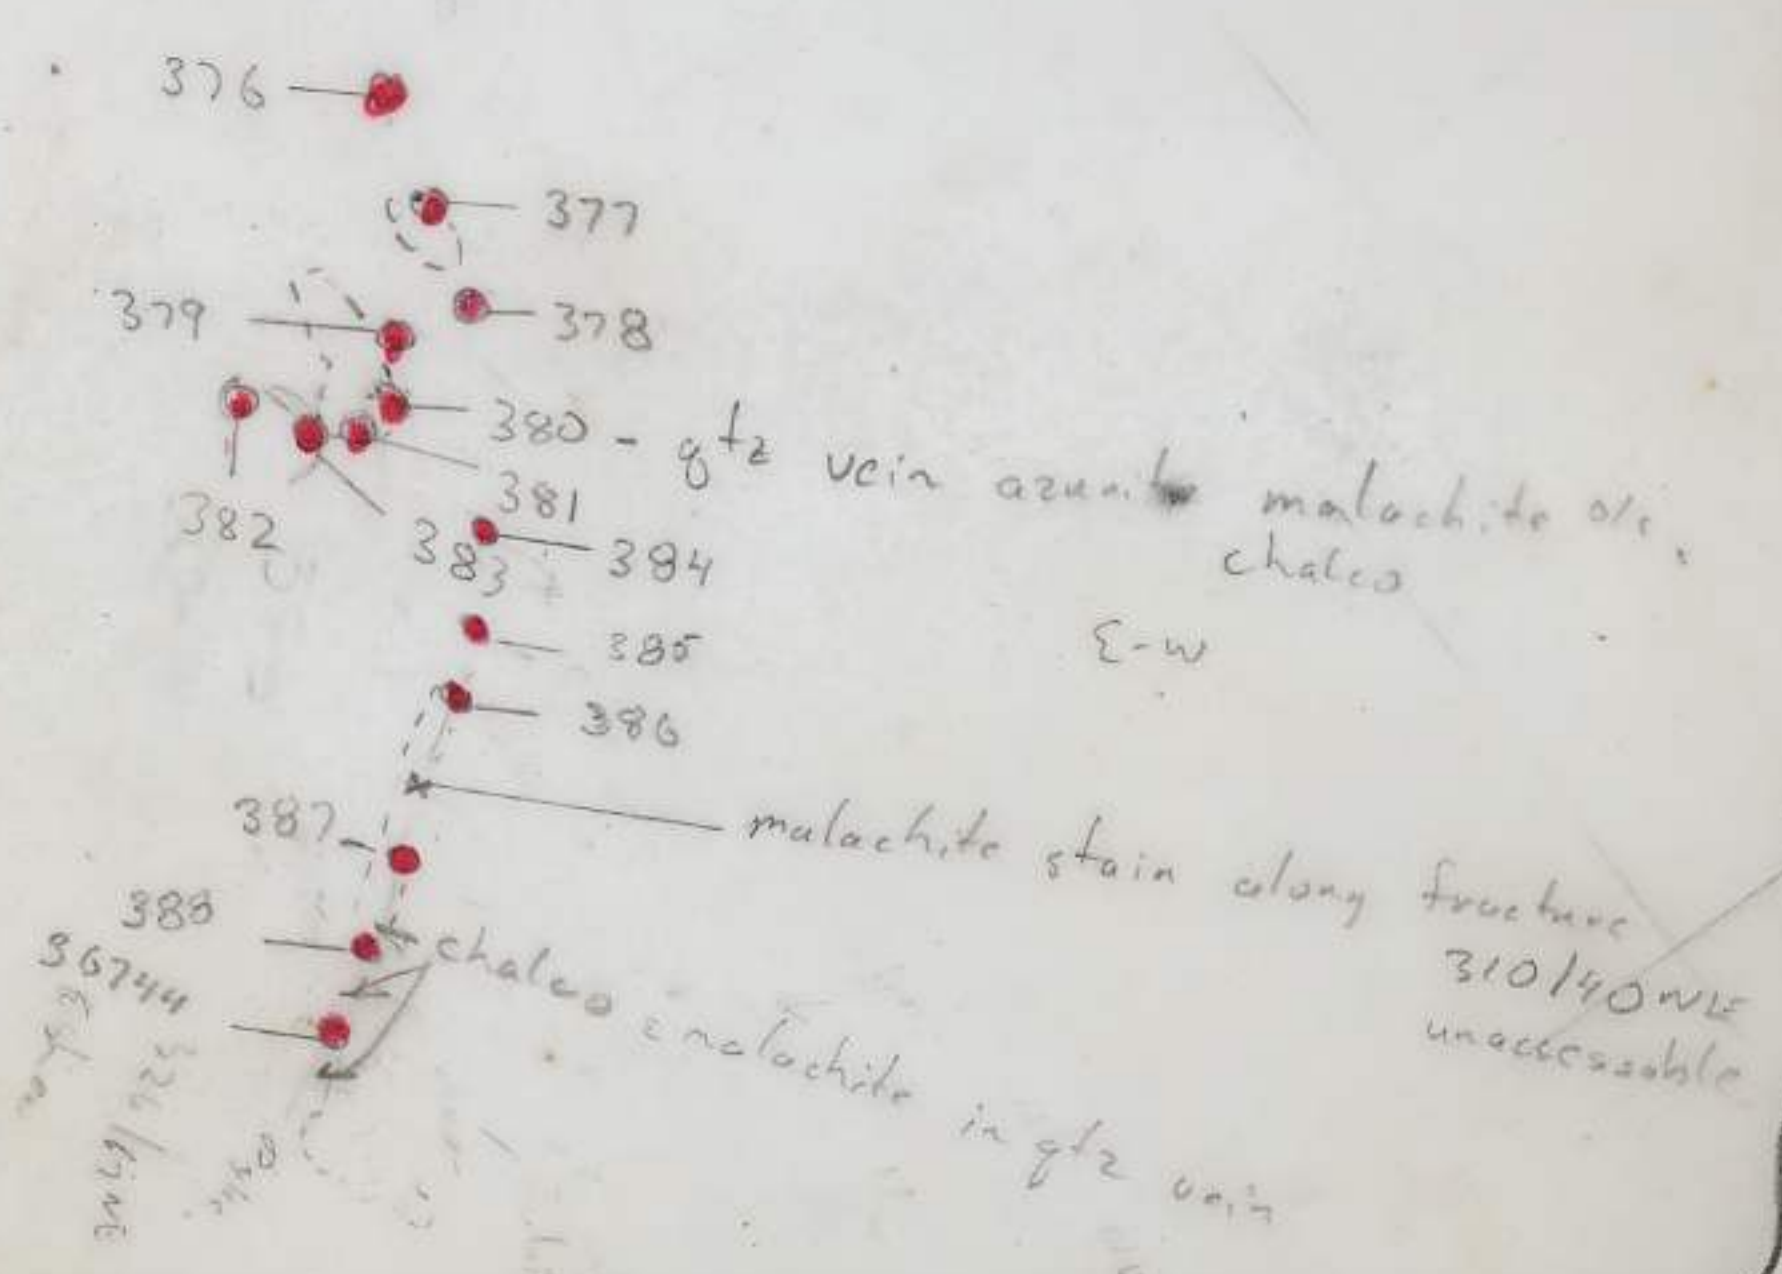 376
377
379
378
380 - qtz vein azurite malachite
chalco
381
382
383
384
E-W
385
386
387
malachite stain along fracture
310/40 NE
unaccessable
388
36744
chalco & malachite in qtz vein